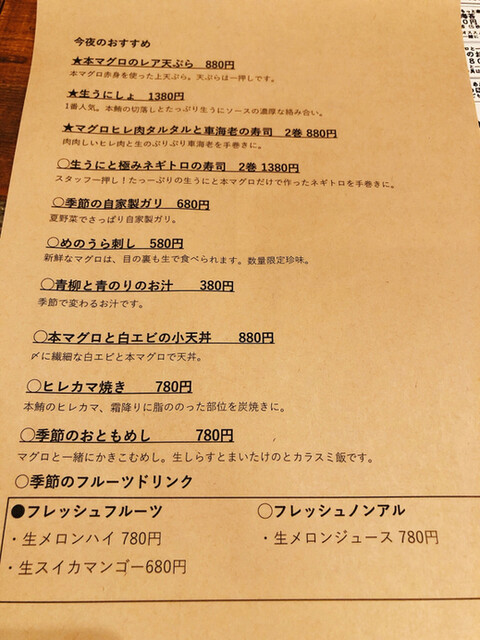 今夜のおすすめ
★本マグロのレア天ぷら 880円
本マグロ赤身を使った上天ぷら。天ぷらは一押しです。
★生うにしょ 1380円
1番人気。本鮪の切落しとたっぷり生うにソースの濃厚な絡み合い。
★マグロヒレ肉タルタルと車海老の寿司 2巻 880円
肉肉しいヒレ肉と生のぷりぷり車海老を手巻きに。
〇生うにと極みネギトロの寿司 2巻 1380円
スタッフ一押し!たっーぷりの生うにと本マグロだけで作ったネギトロを手巻きに。
〇季節の自家製ガリ 680円
夏野菜でさっぱり自家製ガリ。
〇めのうら刺し 580円
新鮮なマグロは、目の裏も生で食べられます。数量限定珍味。
〇青柳と青のりのお汁 380円
季節で変わるお汁です。
〇本マグロと白エビの小天丼 880円
〆に繊細な白エビと本マグロで天丼。
〇ヒレカマ焼き 780円
本鮪のヒレカマ、霜降りに脂ののった部位を炭焼きに。
〇季節のおともめし 780円
マグロと一緒にかきこむめし。生しらすとまいたけのとカラスミ飯です。
〇季節のフルーツドリンク
●フレッシュフルーツ
・生メロンハイ 780円
・生スイカマンゴー680円
〇フレッシュノンアル
・生メロンジュース 780円